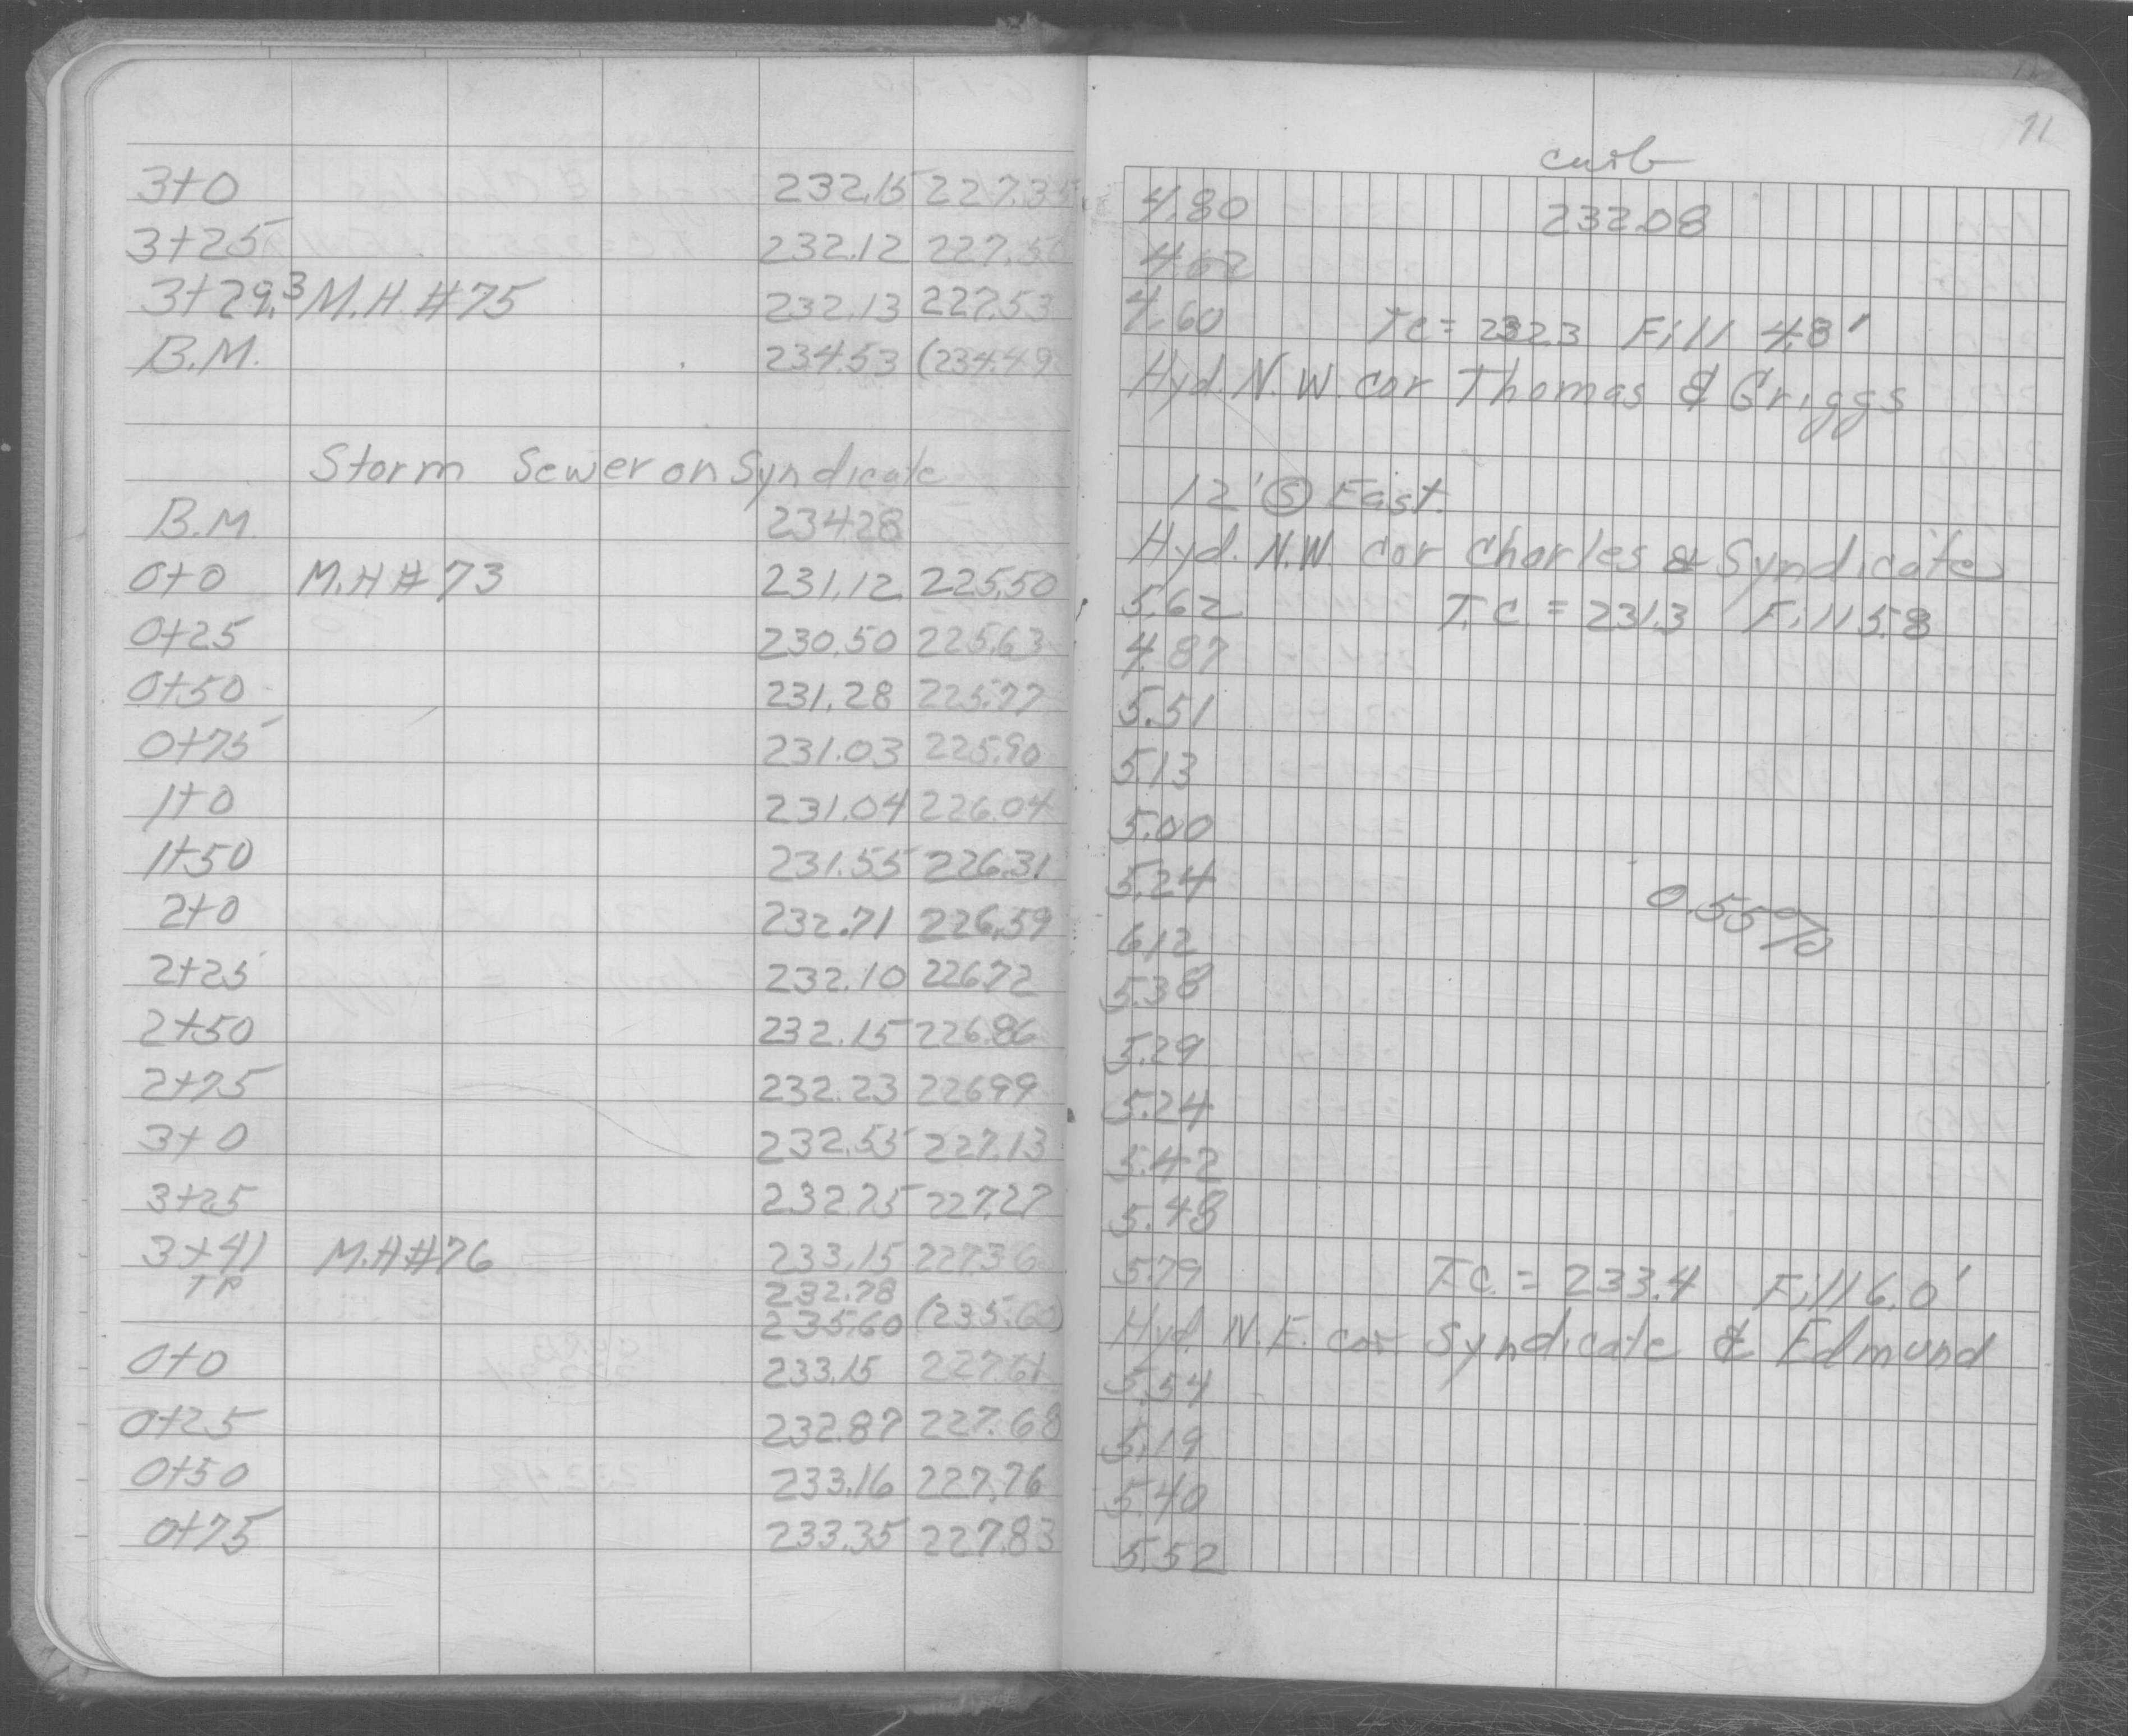 11
curb
3+0 232.15 227.35 4.80 232.08
3+25 232.12 227.50 4.62
3+29.3 M.H. #75 232.13 227.53 4.60 TC = 232.3 Fill 4.8'
B.M. 234.53 (234.49 Hyd. N.W. cor Thomas & Griggs
Storm Sewer on Syndicate 12' Ⓢ East.
B.M. 234.28 Hyd. N.W. cor Charles & Syndicate
0+0 M.H # 73 231.12 225.50 5.62 T.C. = 231.3 Fill 5.8
0+25 230.50 225.63 4.87
0+50 231.28 225.77 5.51
0+75 231.03 225.90 5.13
1+0 231.04 226.04 5.00
1+50 231.55 226.31 5.24 0.55%
2+0 232.71 226.59 6.12
2+25 232.10 226.72 5.38
2+50 232.15 226.86 5.29
2+75 232.23 226.99 5.24
3+0 232.55 227.13 5.42
3+25 232.75 227.27 5.48
3+41 M.H #76 233.15 227.36 5.79 T.C. = 233.4 Fill 6.0'
TP 232.78
235.60 (235.60) Hyd N.E. cor Syndicate & Edmund
0+0 233.15 227.61 5.54
0+25 232.87 227.68 5.19
0+50 233.16 227.76 5.40
0+75 233.35 227.83 5.52